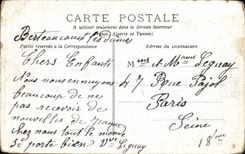 CARTE POSTALE
A utiliser seulement dans le Service Intérieur
(France, Algérie et Tunisie)
Partie réservée à la Correspondance
Berteaucourt les dames
Chers Enfants
Nous nous ennuyons
beaucoup de ne
pas recevoir de
nouvelles de Jeanne
Chez nous tout le monde
se porte bien Vve Leguay
Mr et Mme Leguay
47 Rue Pajol
Paris
Seine
18ème